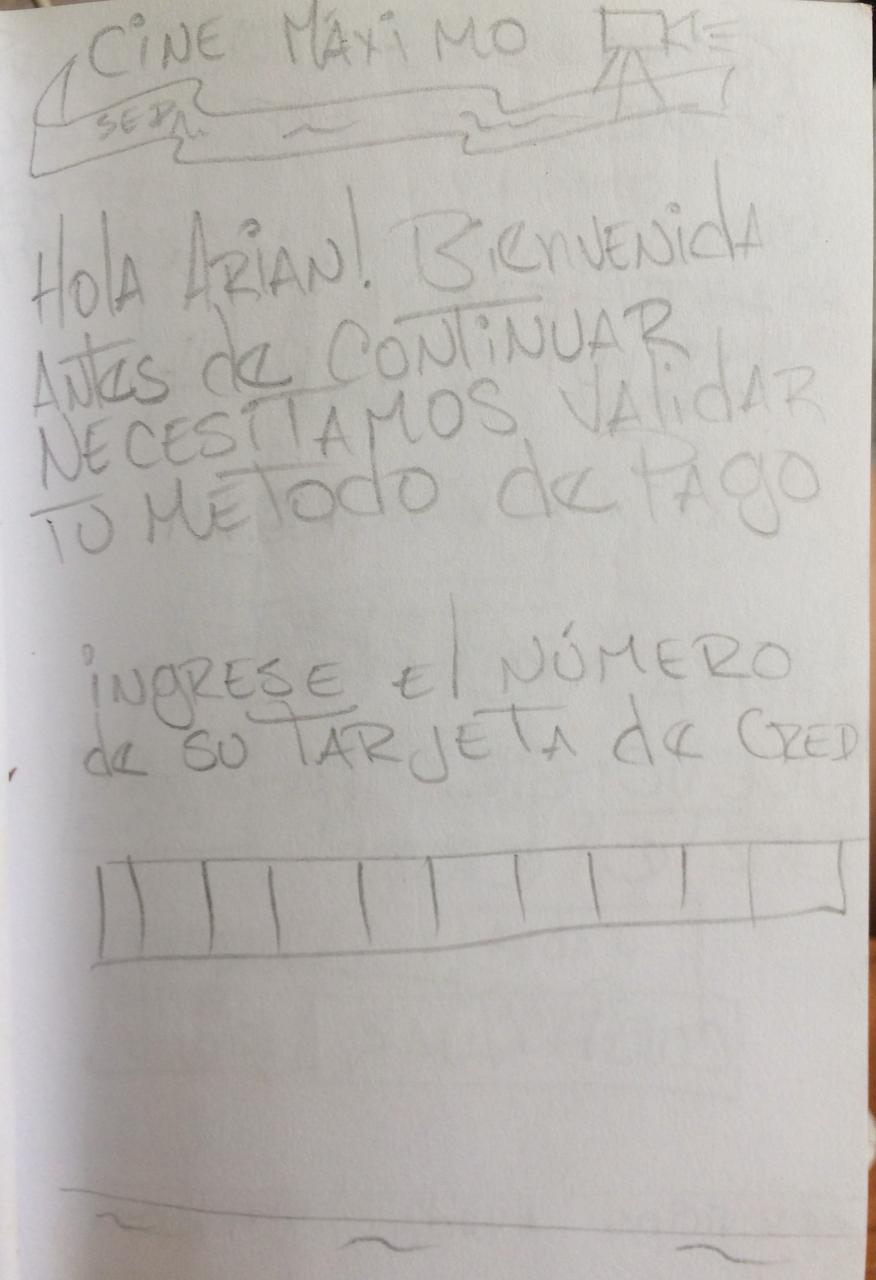 CINE MÁXIMO
HOLA ARIAN! BIENVENIDA
ANTES de CONTINUAR
NECESITAMOS VALIDAR
TU METODO de PAGO
INGRESE El NÚMERO
de SU TARJETA de CRED